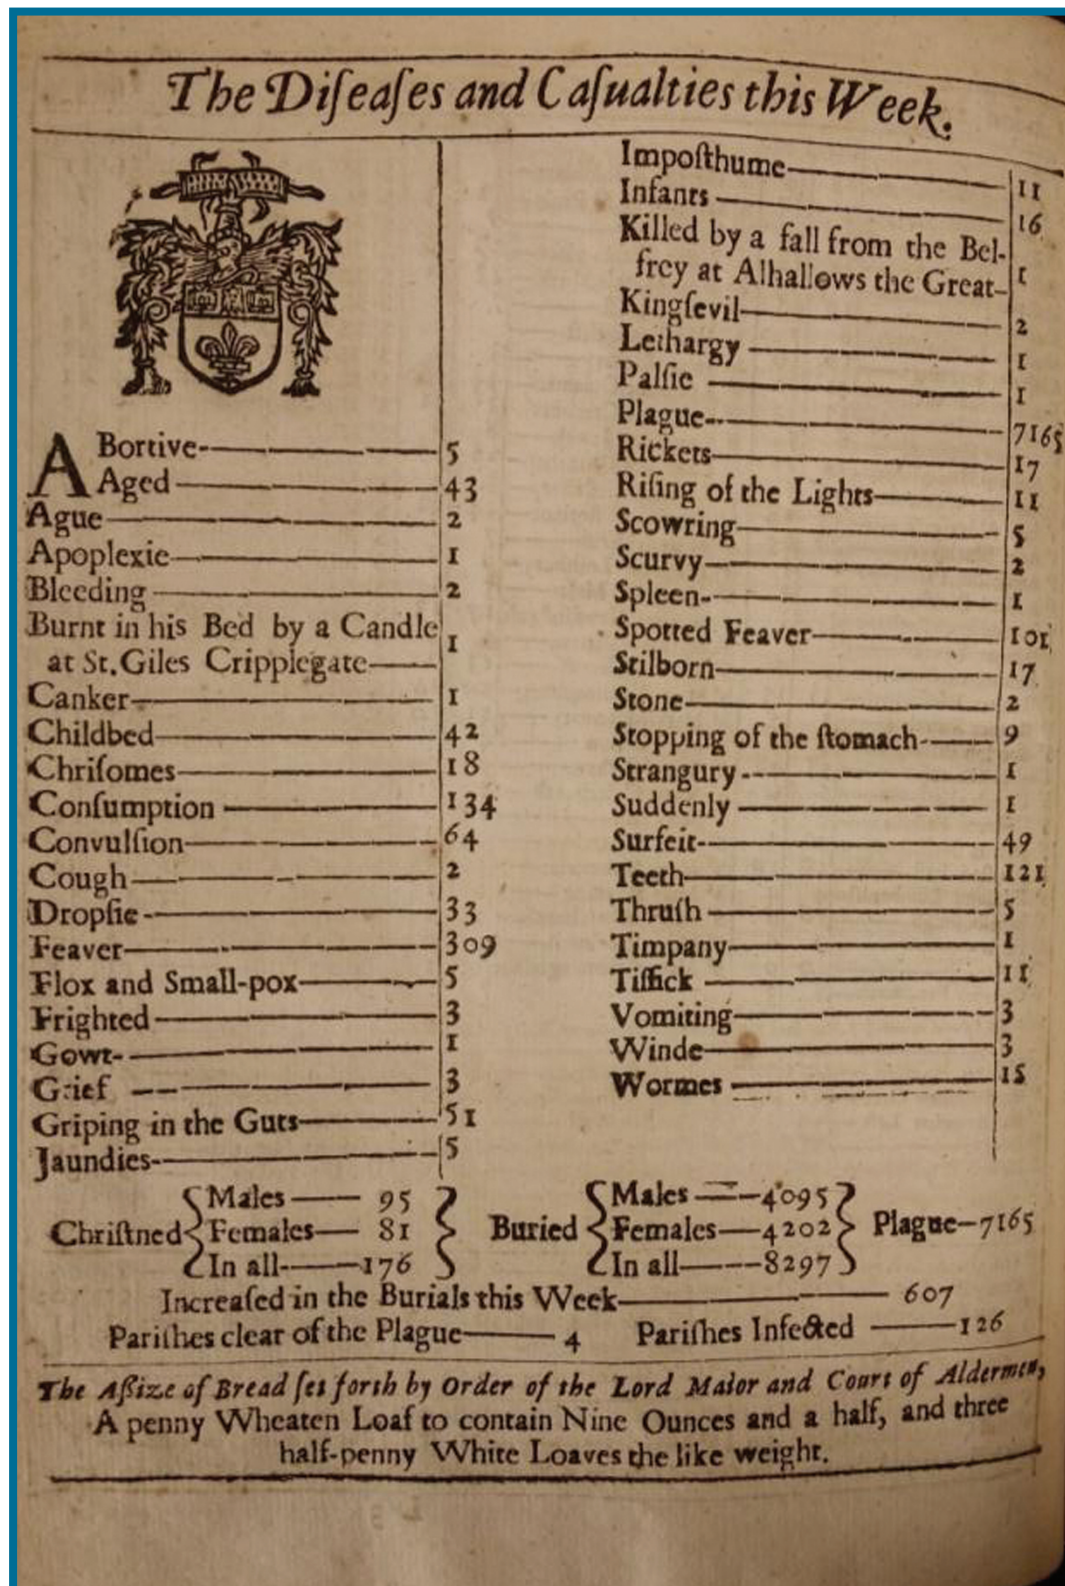 The Diſeaſes and Caſualties this Week.
ABortive 5
Aged 43
Ague 2
Apoplexie 1
Bleeding 2
Burnt in his Bed by a Candle
at St. Giles Cripplegate 1
Canker 1
Childbed 42
Chriſomes 18
Conſumption 134
Convulſion 64
Cough 2
Dropſie 33
Feaver 309
Flox and Small-pox 5
Frighted 3
Gowt 1
Grief 3
Griping in the Guts 51
Jaundies 5
Impoſthume 11
Infants 16
Killed by a fall from the Bel-
frey at Alhallows the Great 1
Kingſevil 2
Lethargy 1
Palſie 1
Plague 7165
Rickets 17
Riſing of the Lights 11
Scowring 5
Scurvy 2
Spleen 1
Spotted Feaver 101
Stilborn 17
Stone 2
Stopping of the ſtomach 9
Strangury 1
Suddenly 1
Surfeit 49
Teeth 121
Thruſh 5
Timpany 1
Tiſſick 11
Vomiting 3
Winde 3
Wormes 15
Chriſtned Males 95 Females 81 In all 176
Buried Males 4095 Females 4202 In all 8297
Plague 7165
Increaſed in the Burials this Week 607
Pariſhes clear of the Plague 4 Pariſhes Infected 126
The Aſsize of Bread ſet forth by Order of the Lord Maior and Court of Aldermen,
A penny Wheaten Loaf to contain Nine Ounces and a half, and three
half-penny White Loaves the like weight.